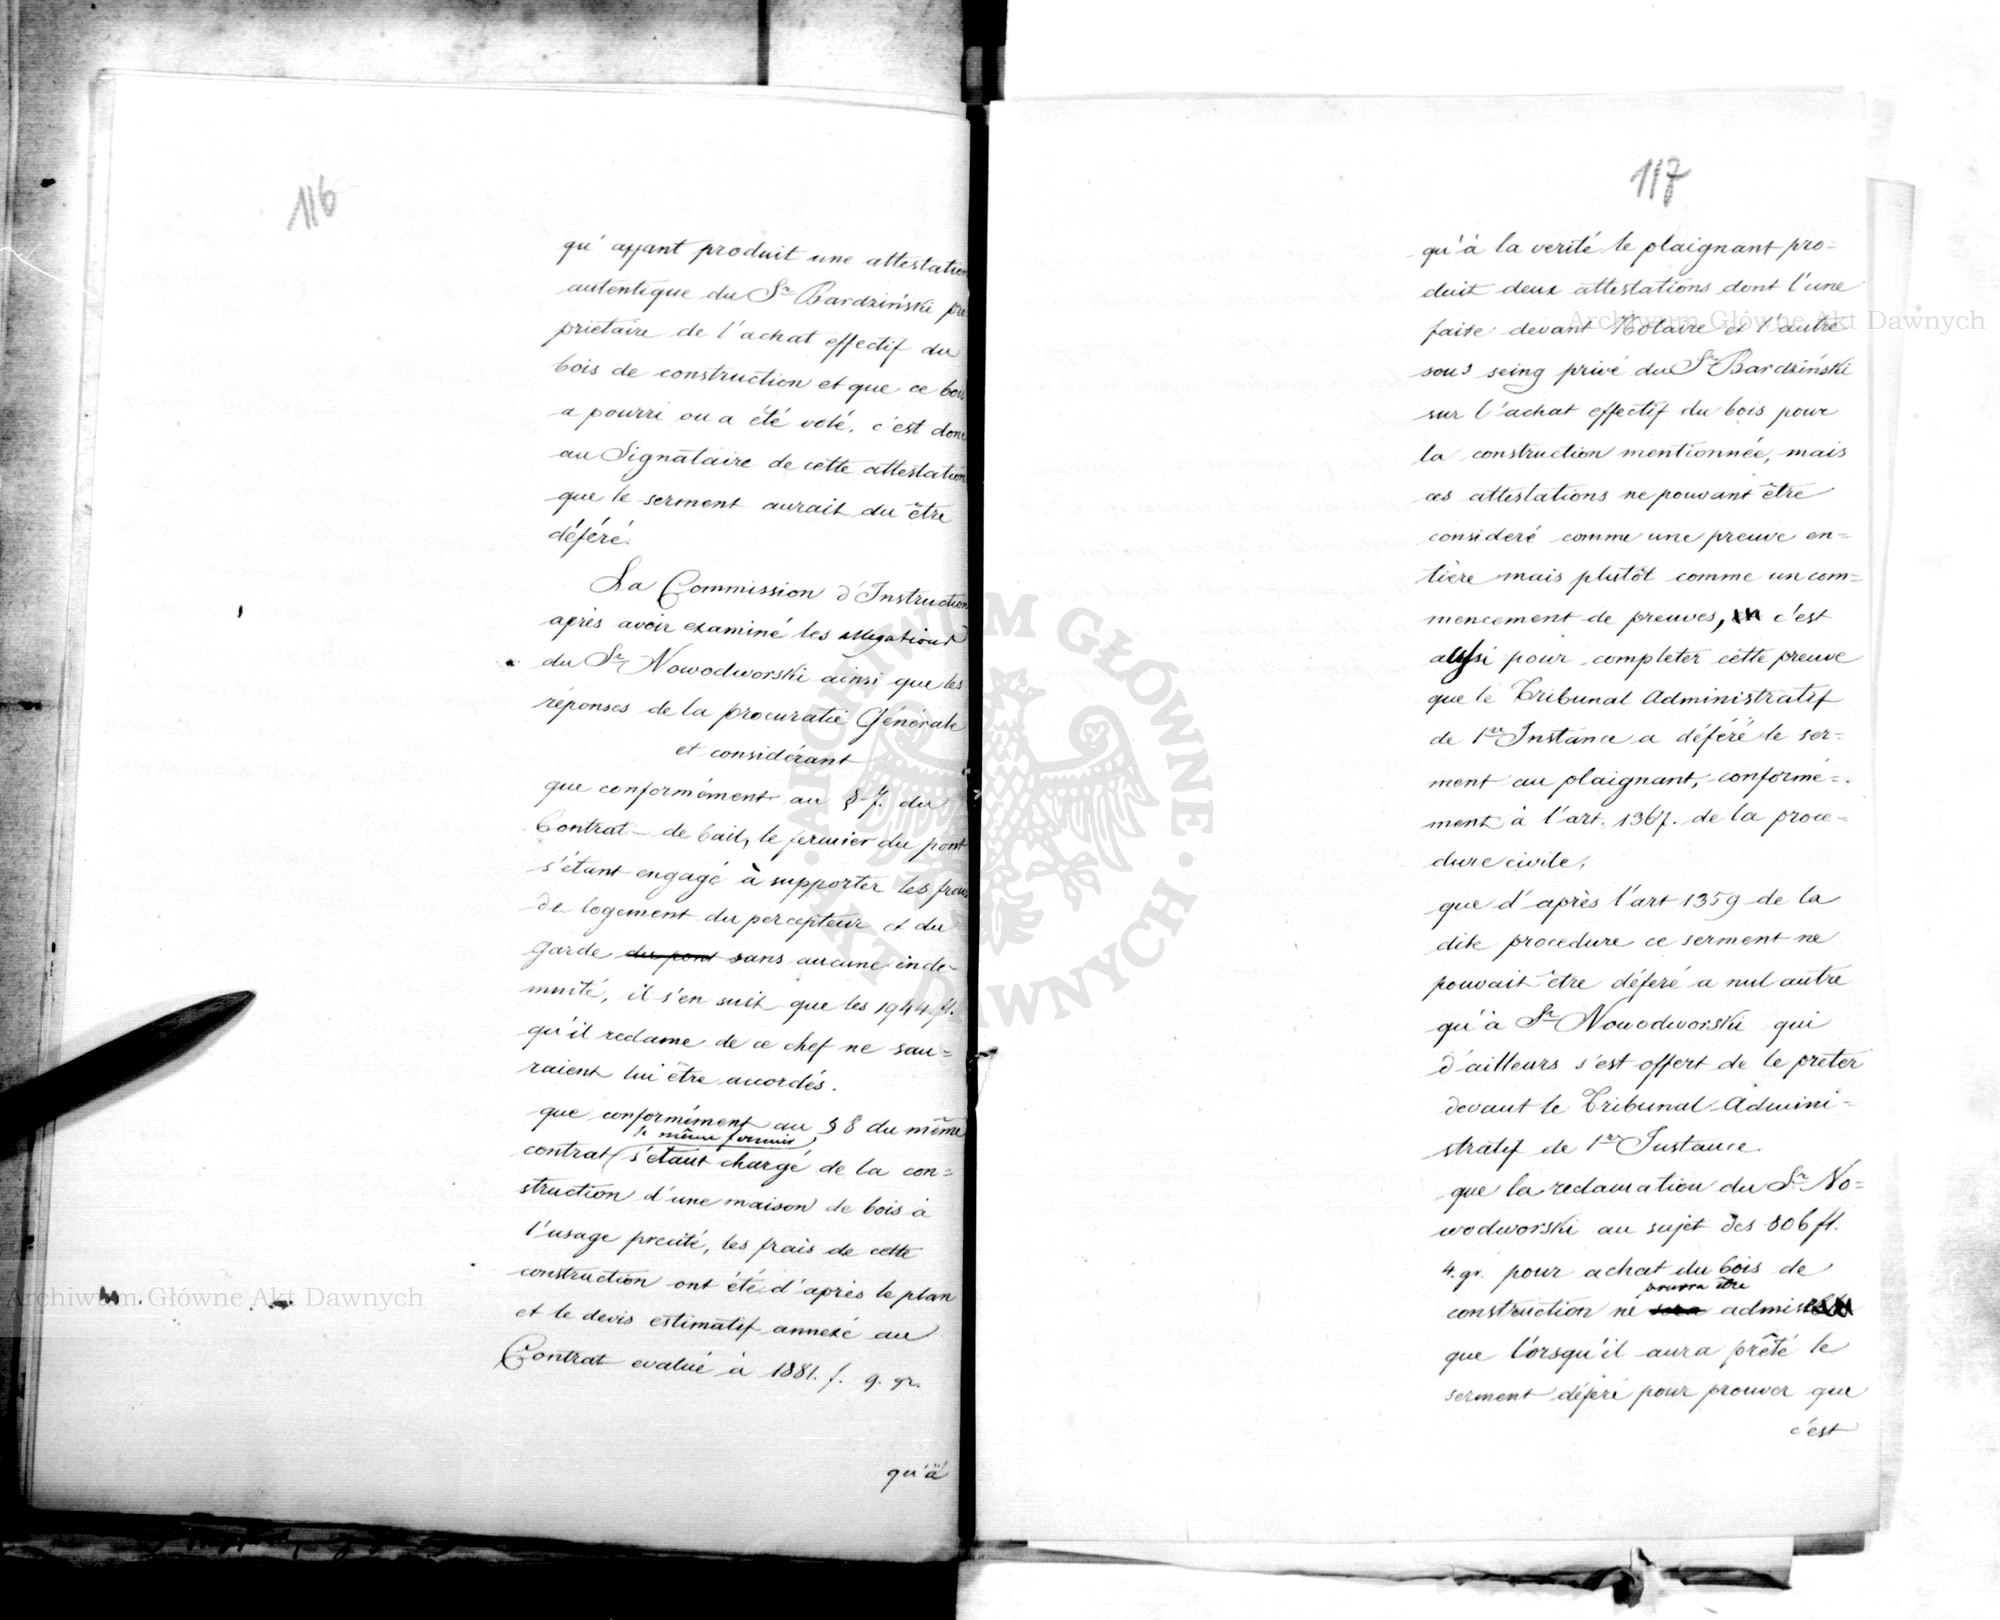 116
qu'ayant produit une attestation
autentique du Sr Bardziński pro
prietaire de l'achat effectif du
bois de construction et que ce bois
a pourri ou a été volé, c'est donc
au Signataire de cette attestation
que le serment aurait du être
déféré.
La Commission d'Instruction
après avoir examiné les allegations
du Sr Nowodworski ainsi que les
réponses de la procuratie Générale
et considérant
que conformément au § 7. du
Contrat de bail, le fermier du pont
s'étant engagé à supporter les frais
de logement du percepteur et du
garde du pont sans aucune inde-
mnité, il s'en suit que les 1944. fl.
qu'il reclame de ce chef ne sau=
raient lui être accordés.
que conformément au § 8 du même
le même fermier
contrat s'étant chargé de la con=
struction d'une maison de bois à
l'usage precité, les frais de cette
construction ont été d'après le plan
et le devis estimatif annexé au
Contrat evalué à 1881. f. 9. gr.
qu'à
117
qu'à la verité le plaignant pro=
duit deux attestations dont l'une
faite devant Notaire et l'autre
sous seing privé du Sr Bardziński
sur l'achat effectif du bois pour
la construction mentionnée, mais
ces attestations ne pouvant être
consideré comme une preuve en=
tière mais plutôt comme un com=
mencement de preuves, c'est
aussi pour completer cette preuve
que le Tribunal Administratif
de 1re Instance a déféré le ser=
ment au plaignant, conformé=
ment à l'art. 1367. de la proce=
dure civile,
que d'après l'art 1359 de la
dite procedure ce serment ne
pouvait être déferé a nul autre
qu'à Sr Nowodworski qui
d'ailleurs s'est offert de le prêter
devant le Tribunal Admini=
stratif de 1re Instance
que la reclamation du Sr No=
wodworski au sujet des 806 fl.
4. gr. pour achat du bois de
pourra être
construction ne sera admis
que lorsqu'il aura prêté le
serment déféré pour prouver que
c'est
Archiwum Główne Akt Dawnych
Archiwum Główne Akt Dawnych
ARCHIWUM GŁÓWNE · AKT DAWNYCH ·